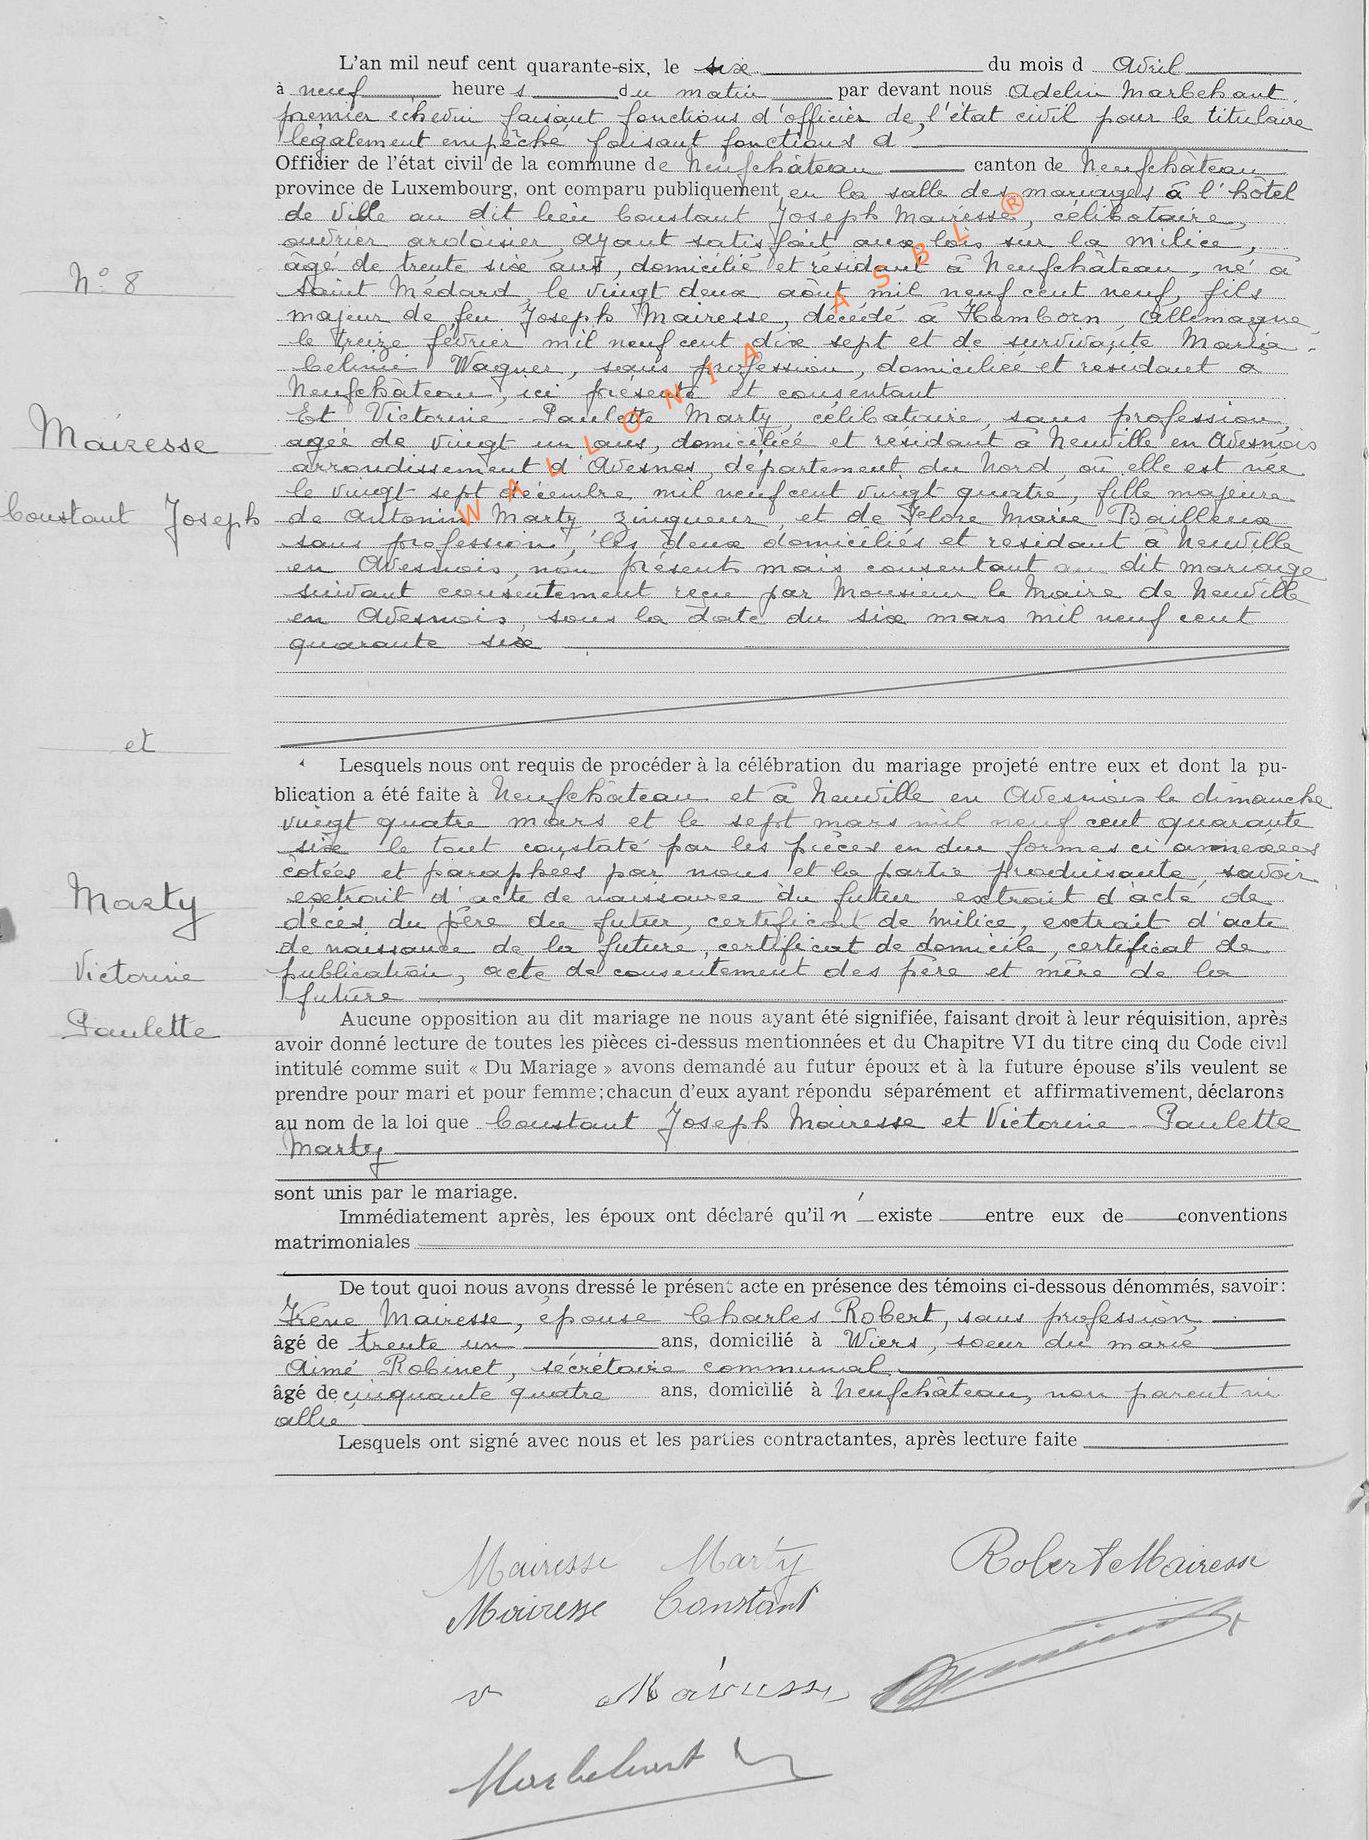 L'an mil neuf cent quarante-six, le six du mois d Avril
à neuf heure s du matin par devant nous Adelin Marbehant
premier échevin faisant fonctions d'officier de l'état civil pour le titulaire
légalement empêché faisant fonctions d
Officier de l'état civil de la commune de Neufchâteau canton de Neufchâteau
province de Luxembourg, ont comparu publiquement en la salle des mariages à l'hôtel
de Ville au dit lieu Constant Joseph Mairesse, célibataire,
ouvrier ardoisier, ayant satisfait aux lois sur la milice,
N° 8
âgé de trente six ans, domicilié et résidant à Neufchâteau, né à
Saint Médard, le vingt deux août mil neuf cent neuf, fils
majeur de feu Joseph Mairesse, décédé à Hamborn, Allemagne,
le treize février mil neuf cent dix sept et de survivante Maria
Célinie Wagner, sans profession, domiciliée et résidant à
Neufchâteau, ici présente et consentant
Et Victorine Paulette Marty, célibataire, sans profession,
Mairesse
âgée de vingt un ans, domiciliée et résidant à Neuville en Avesnois
arrondissement d'Avesnes, département du Nord, où elle est née
le vingt sept décembre mil neuf cent vingt quatre, fille majeure
Constant Joseph
de Antonin Marty, zingueur, et de Flore Marie Bailleux
sans profession, les deux domiciliés et résidant à Neuville
en Avesnois, non présents mais consentant au dit mariage
suivant consentement reçu par Monsieur le Maire de Neuville
en Avesnois, sous la date du six mars mil neuf cent
quarante six
WALLONIA ASBL ®
et
Lesquels nous ont requis de procéder à la célébration du mariage projeté entre eux et dont la pu-
blication a été faite à Neufchâteau et à Neuville en Avesnois le dimanche
vingt quatre mars et le sept mars mil neuf cent quarante
six le tout constaté par les pièces en due formes ci annexées
cotées et paraphées par nous et la partie produisante, savoir
Marty
extrait d'acte de naissance du futur extrait d'acte de
décès du père du futur, certificat de milice, extrait d'acte
de naissance de la future, certificat de domicile, certificat de
Victorine
publication, acte de consentement des père et mère de la
future
Paulette
Aucune opposition au dit mariage ne nous ayant été signifiée, faisant droit à leur réquisition, après
avoir donné lecture de toutes les pièces ci-dessus mentionnées et du Chapitre VI du titre cinq du Code civil
intitulé comme suit « Du Mariage » avons demandé au futur époux et à la future épouse s'ils veulent se
prendre pour mari et pour femme; chacun d'eux ayant répondu séparément et affirmativement, déclarons
au nom de la loi que Constant Joseph Mairesse et Victorine Paulette
Marty
sont unis par le mariage.
Immédiatement après, les époux ont déclaré qu'il n'existe entre eux de conventions
matrimoniales
De tout quoi nous avons dressé le présent acte en présence des témoins ci-dessous dénommés, savoir:
Irène Mairesse, épouse Charles Robert, sans profession,
âgé de trente un ans, domicilié à Wiers, soeur du marié
Aimé Robinet, sécrétaire communal
âgé de cinquante quatre ans, domicilié à Neufchâteau, non parent ni
allié
Lesquels ont signé avec nous et les parties contractantes, après lecture faite
Mairesse Marty Robert Mairesse
Mairesse Constant
v Mairesse
Marbehant